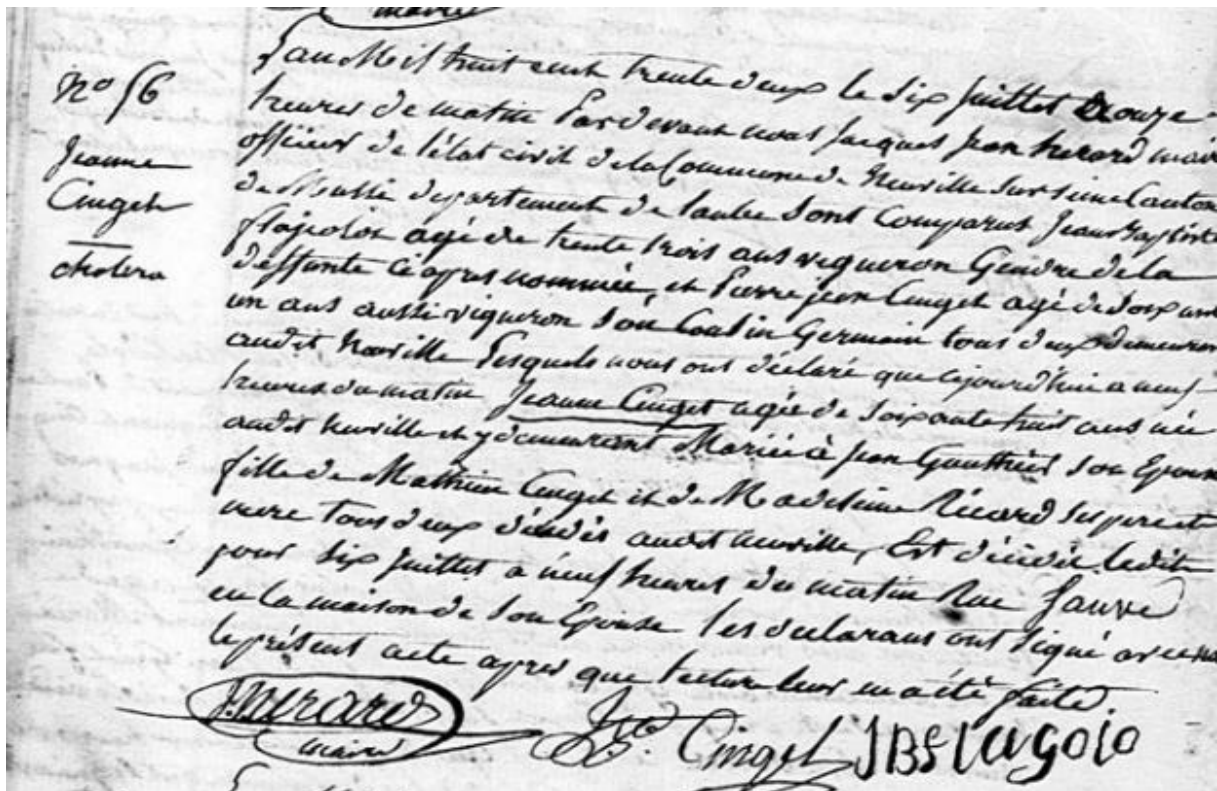 maire
nº 56
Jeanne
Cinget
cholera
L'an Mil huit cent trente deux le six juillet onze
heures de matin Pardevant nous Jacques Jean herard maire
officier de l'état civil de la Commune de Neuville sur seine Canton
de Mussi departement de l'aube sont Comparus Jean Baptiste
flajolot agé de trente trois ans vigneron Gendre de la
deffunte ci apres nommée, et Pierre jean Cinget agé de soixante
un ans aussi vigneron son Cousin Germain tous deux demeurant
audit Neuville Lesquels nous ont déclaré que cejourd'hui a neuf
heures du matin Jeanne Cinget agée de soixante huit ans née
audit Neuville et y demeurant Mariée à jean Gauthier son Epoux
fille de Mathieu Cinget et de Madeleine Ricard ses pere et
mere tous deux décédés audit Neuville, Est décédée ledit
jour six juillet a neuf heures du matin Rue
en la maison de son Epouse les declarans ont signé avec nous
le présent acte apres que lecture leur en a été faite.
J. herard
maire
Cinget
JBflagolo